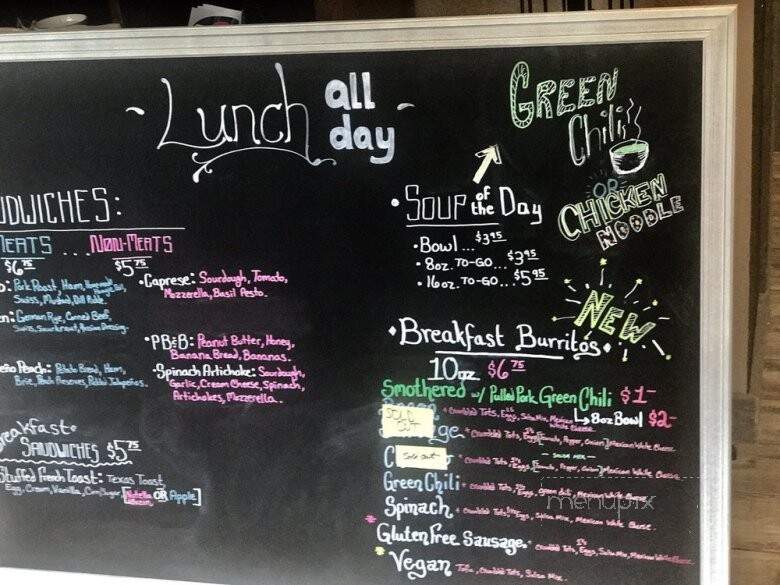 Lunch all day
GREEN
Chili
OR
CHICKEN
NOODLE
SOUP of the Day
Bowl... $3.95
8oz. TO-GO... $3.95
16oz. TO-GO... $5.95
NEW
Breakfast Burritos
10oz $6.75
Smothered w/ Pulled Pork Green Chili $1-
8oz Bowl $2-
SOLD OUT
Crumbled Tots, Eggs, Salsa Mix, Mexican White Cheese
Crumbled Tots, Eggs, [Tomato, Pepper, Onion] Mexican White Cheese
SALSA MIX
Sold Out
Crumbled Tots, Eggs, [Tomato, Pepper, Onion] Mexican White Cheese
Green Chili Crumbled Tots, Eggs, Green Chili, Mexican White Cheese
Spinach Crumbled Tots, Eggs, Salsa Mix, Mexican White Cheese.
Gluten Free Sausage Crumbled Tots, Eggs, Salsa Mix, Mexican White Cheese
Vegan Tofu, Crumbled Tots, Salsa Mix.
DWICHES:
MEATS ... NON-MEATS
$6.75 $5.75
Pork Roast, Ham,
Swiss, Mustard, Dill Pickle.
German Rye, Corned Beef,
Swiss, Sauerkraut, Russian Dressing.
Peach: Potato Bread, Ham,
Brie, Peach Preserves, Pickled Jalapeños.
Caprese: Sourdough, Tomato,
Mozzerella, Basil Pesto.
PB&B: Peanut Butter, Honey,
Banana Bread, Bananas.
Spinach Artichoke: Sourdough,
Garlic, Cream Cheese, Spinach,
Artichokes, Mozzerella.
eakfast
SANDWICHES $5.75
Stuffed French Toast: Texas Toast,
Egg, Cream, Vanilla, Cin/Sugar, [Nutella OR Apple]
menupix